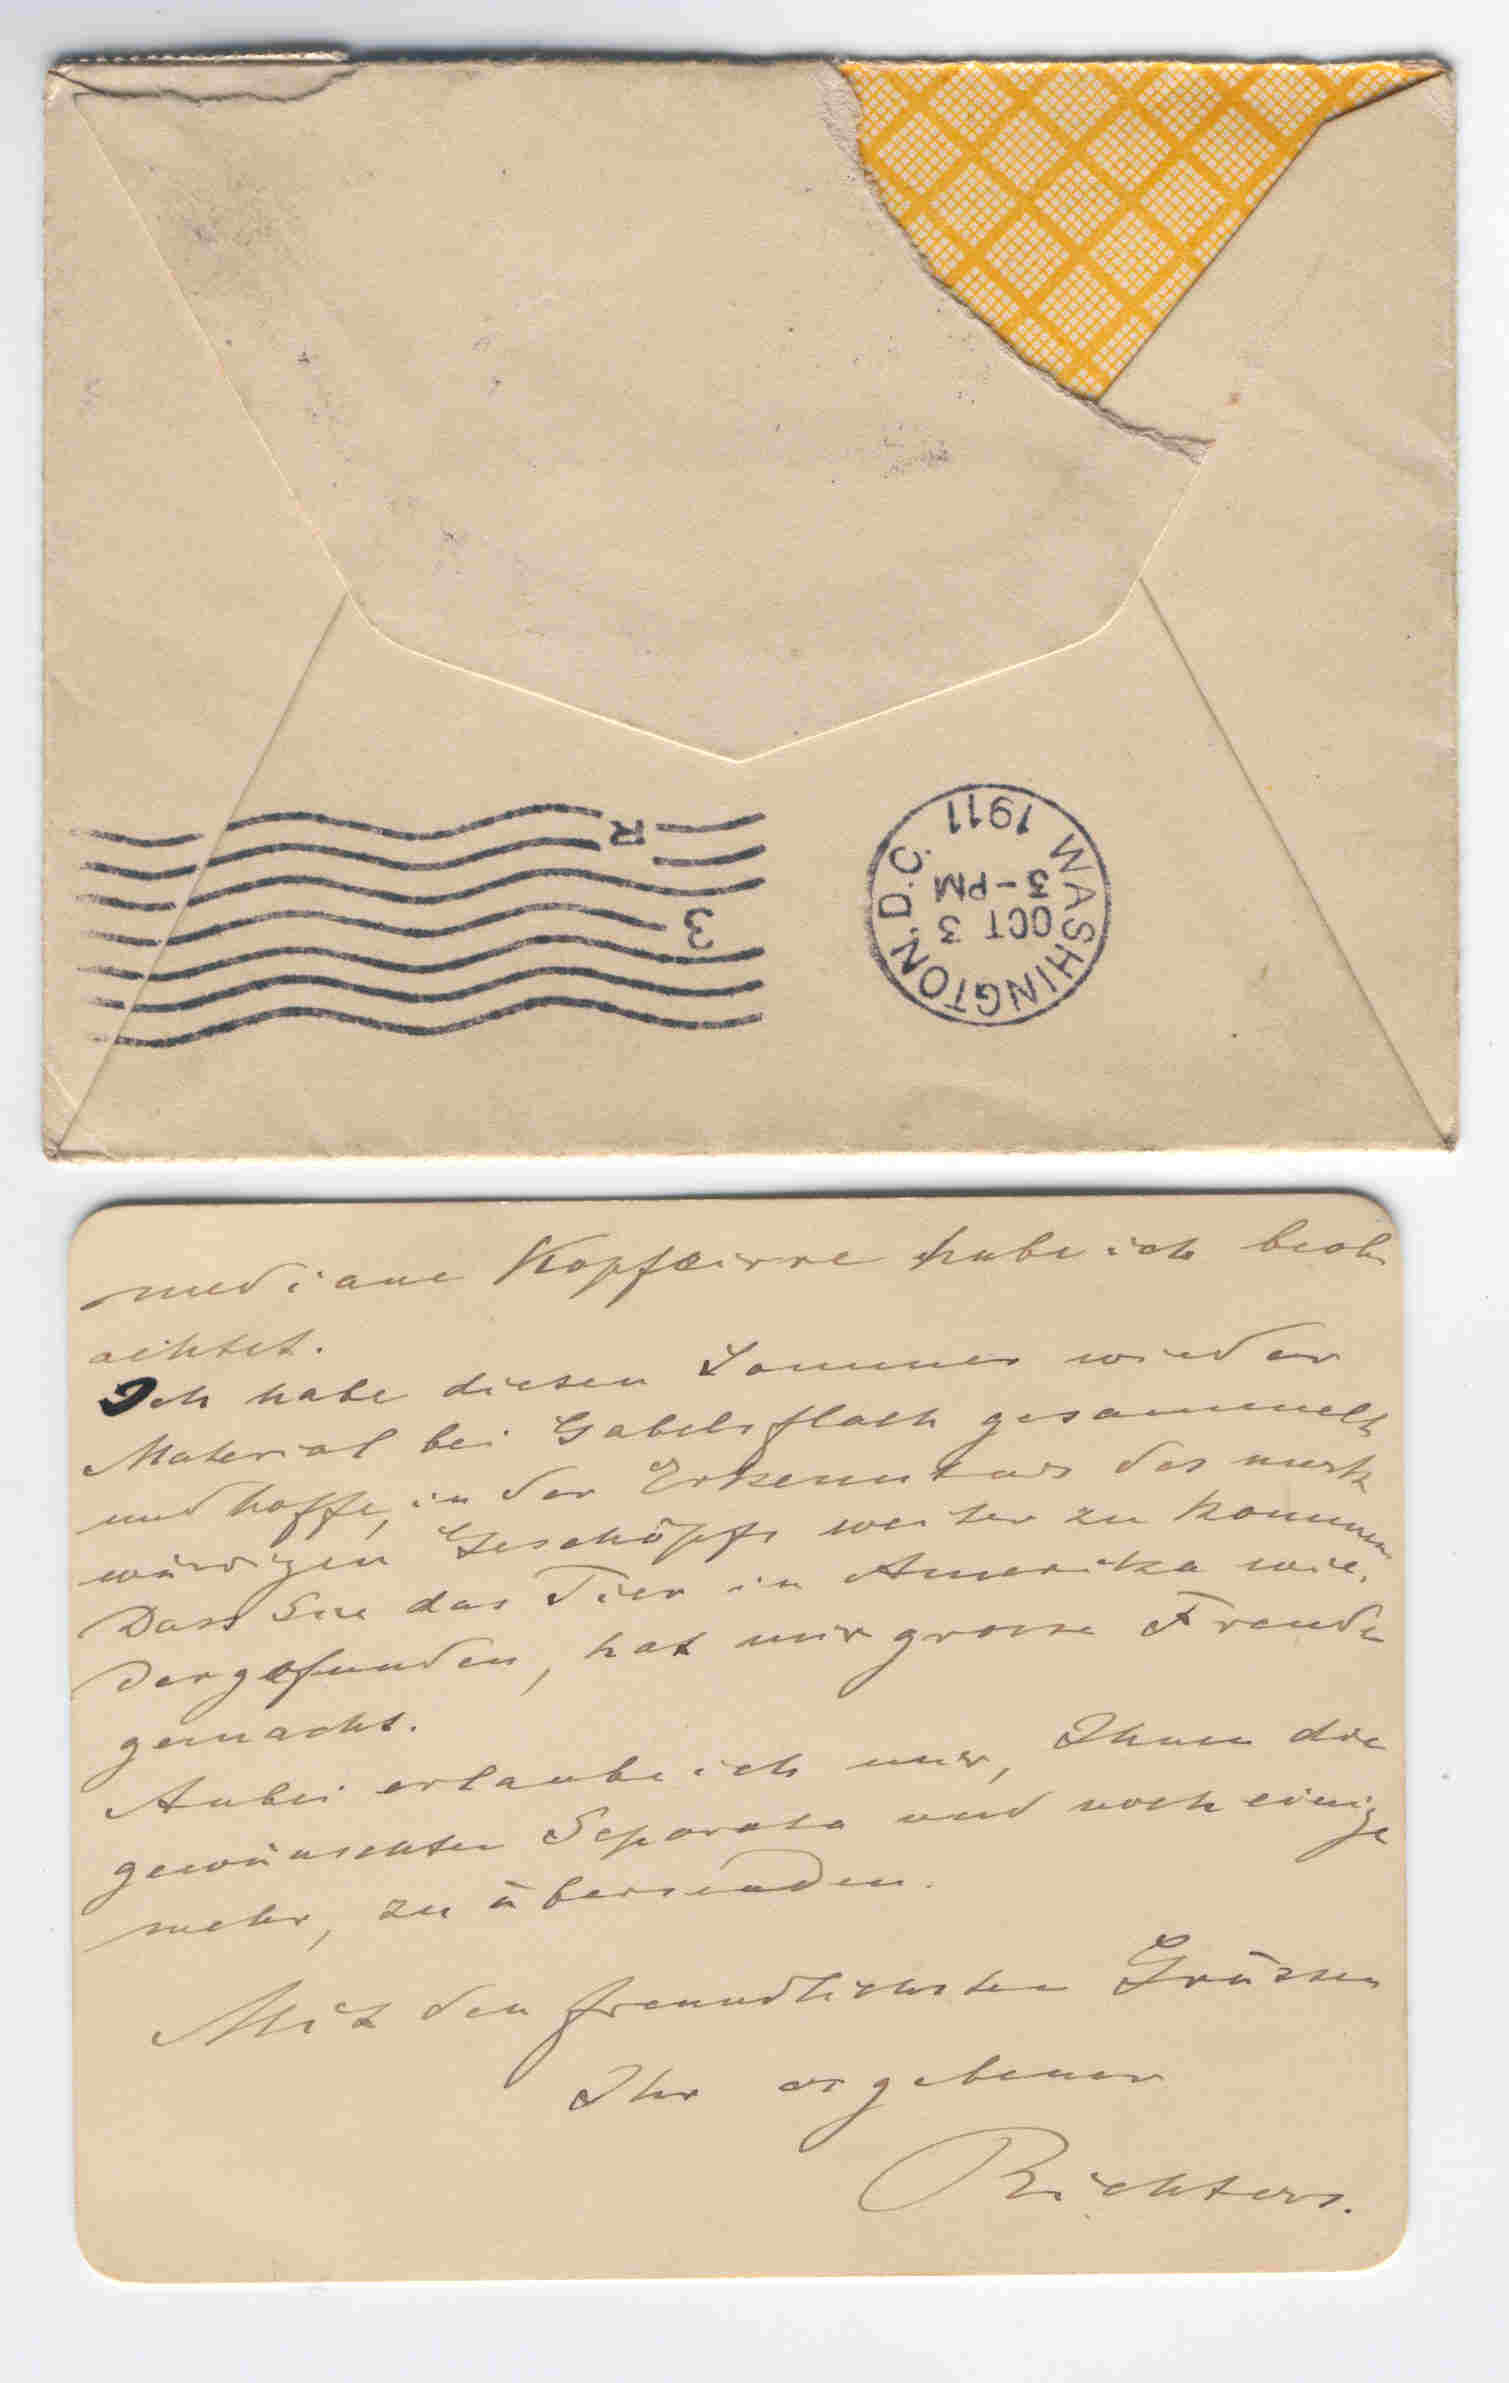 R
3
WASHINGTON, D.C.
OCT 3
3-PM
1911
mediane Kopfcirre habe ich beob
achtet.
Ich habe diesen Sommer wieder
Material bei Gabelsflach gesammelt
und hoffe, in der Erkenntnis des merk
würdigen Geschöpfs weiter zu kommen
Dass Sie das Tier in Amerika wie
dergefunden, hat mir grosse Freude
gemacht.
Anbei erlaube ich mir, Ihnen die
gewünschten Separata und noch einige
mehr, zu übersenden.
Mit den freundlichsten Grüssen
Ihr ergebener
Richters.